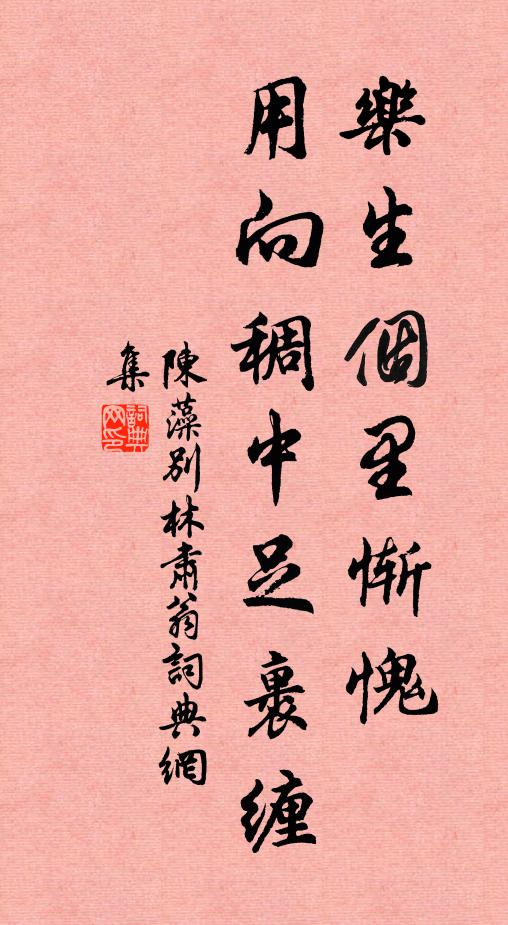 樂生個里慚愧
用向稠中足裹纏
陳藻別林肅翁詞典網
集
詞典
网印